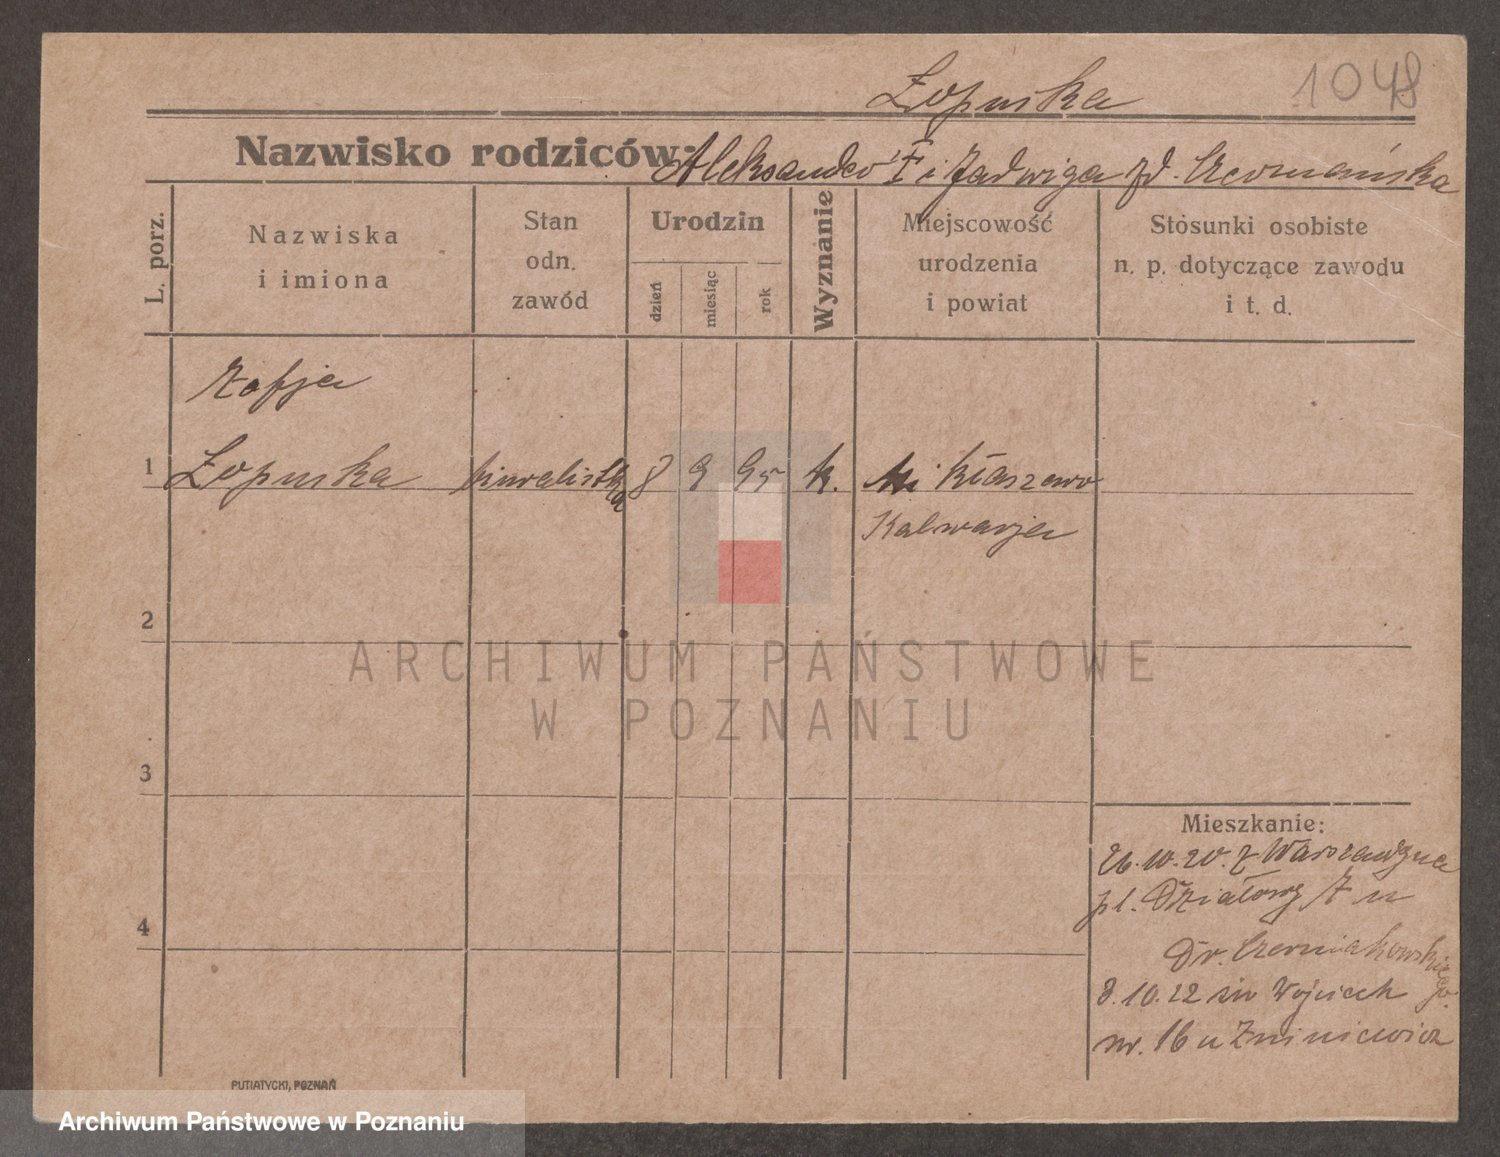 1048
Łopuska
Nazwisko rodziców:
Aleksander F i Jadwiga zd.
L. porz.
Nazwiska
i imiona
Stan
odn.
zawód
Urodzin
dzień
miesiąc
rok
Wyznanie
Miejscowość
urodzenia
i powiat
Stosunki osobiste
n. p. dotyczące zawodu
i t. d.
Zofja
1 Łopuska biuralistka 8 9 95 k.
Kalwarja
2
ARCHIWUM PAŃSTWOWE
W POZNANIU
3
Mieszkanie:
26.10.20. z Warszawy na
pl. Działowy 7 u
4
Dr. Czerniakowskiego.
3.10.22 św Wojciech
nr. 16 u
PUTIATYCKI, POZNAŃ
Archiwum Państwowe w Poznaniu